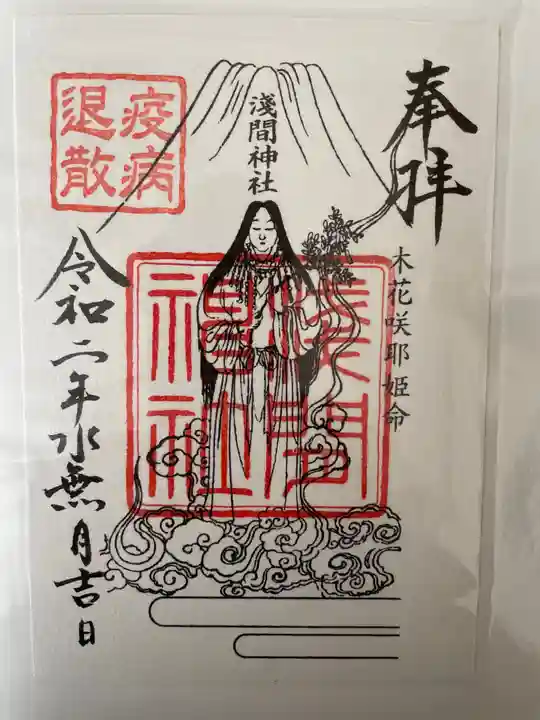 奉拝
木花咲耶姫命
淺間神社
淺間
神社
疫病
退散
令和二年水無月吉日